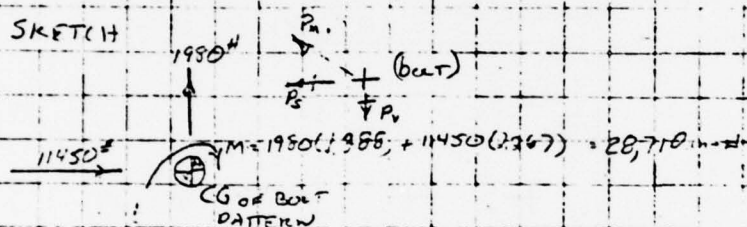 SKETCH
1980#
Pm.
(BOLT)
Ps
Pv
11450#
M = 1980( + 11450( = 28,710 in-#
CG OF BOLT
PATTERN